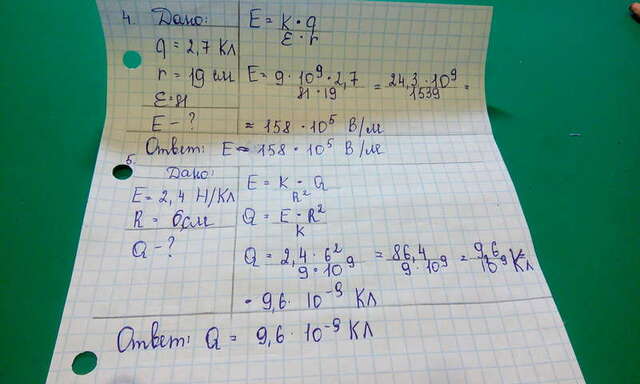 4. Дано:
q = 2,7 Кл
r = 19 см
ε = 81
E - ?
E = k · q / ε · r
E = 9 · 10⁹ · 2,7 / 81 · 19 = 24,3 · 10⁹ / 1539 =
= 158 · 10⁵ В/м
Ответ: E = 158 · 10⁵ В/м
5. Дано:
E = 2,4 Н/Кл
R = 6 см
Q - ?
E = k · Q / R²
Q = E · R² / k
Q = 2,4 · 6² / 9 · 10⁹ = 86,4 / 9 · 10⁹ = 9,6 / 10⁹ Кл
= 9,6 · 10⁻⁹ Кл
Ответ: Q = 9,6 · 10⁻⁹ Кл